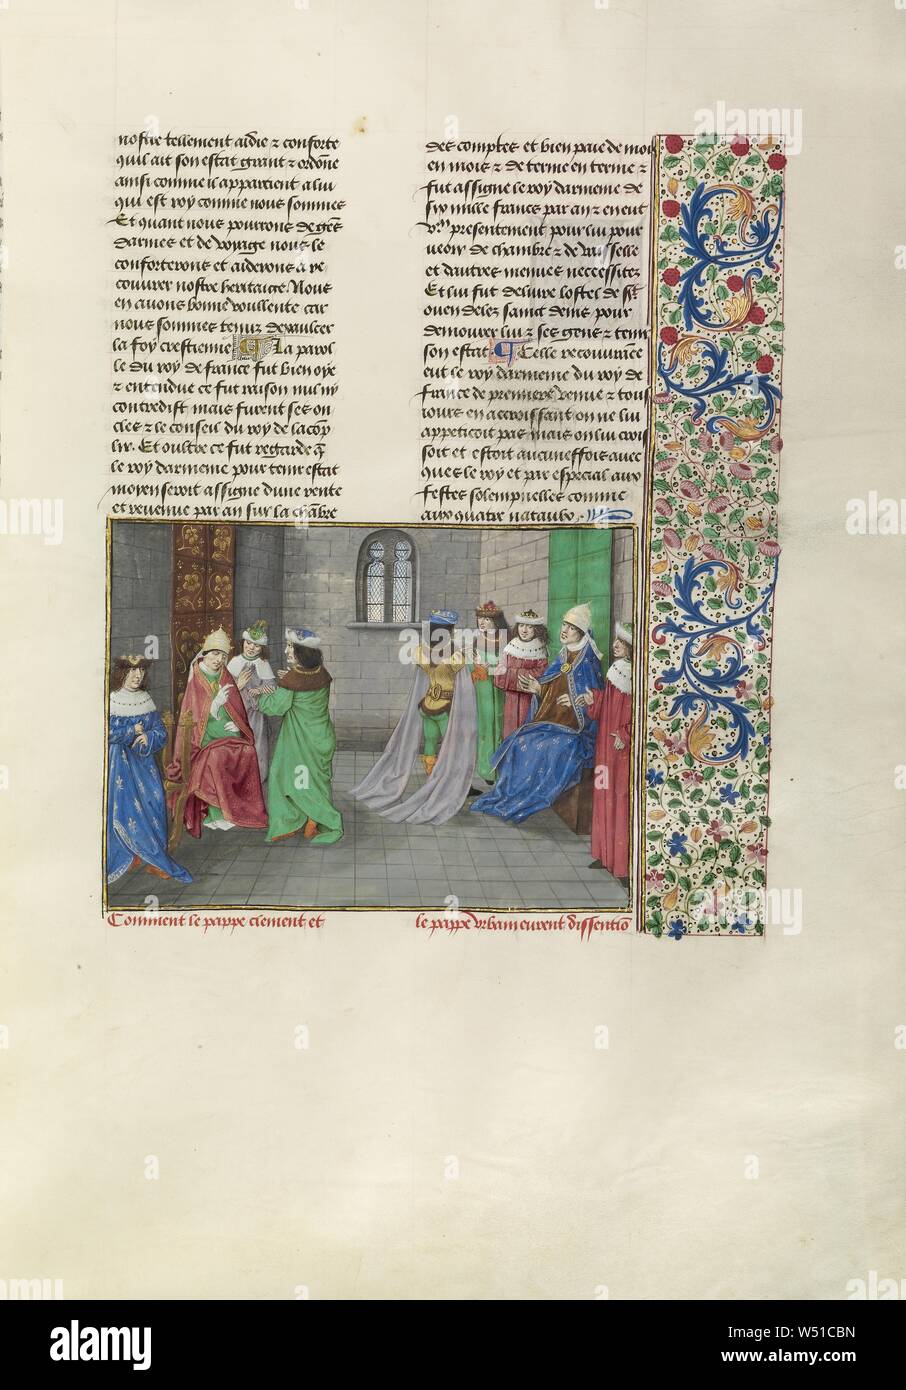 nostre tellement aidie & conforte
quil ait son estat grant & ordone
ainsi comme il appartient a lui
qui est roy comme nous sommes
Et quant nous pourrons de gēs
darmes et de voyage nous le
conforterons et aiderons a re
couvrer nostre heritaige. Nous
en avons bonne voullente car
nous sommes tenuz dexaulcer
la foy crestienne La parol
le du roy de france fut bien oye
& entendue ce fut raison nul ny
contredist mais furent ses on
cles & le conseil du roy de lacōp
lir. Et oultre ce fut regarde q̄
le roy darmenie pour tenir estat
moyen seroit assigne dune rente
et revenue par an sur la chābre
des comptes et bien paie de mois
en mois & de terme en terme &
fut assigne le roy darmenie de
six mille francs par an & en eut
presentement pour lui pour
veoir de chambre & de vaisselle
et dautres menues necessitez
Et lui fut delivre lostel de sit
ouen delez saint denis pour
demourer lui & ses gens & tenir
son estat. Telle recouvrāce
eut le roy darmenie du roy de
france de premiere venue & tous
iours en accroissant on ne lui
appeticoit pas mais on lui crois
soit et estoit aucuneffois avec
ques le roy et par especial aux
festes solempnelles comme
aux quatre nataulx.
Comment le pappe clement et
le pappe urbain eurent dissentiō
alamy
Image ID: W51CBN
www.alamy.com